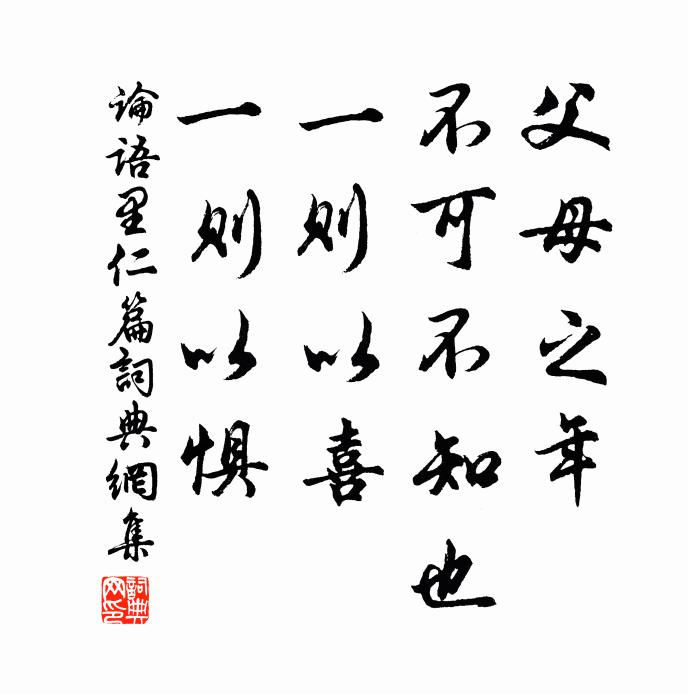 父母之年
不可不知也
一则以喜
一则以惧
論語里仁篇詞典網集
詞典
网印